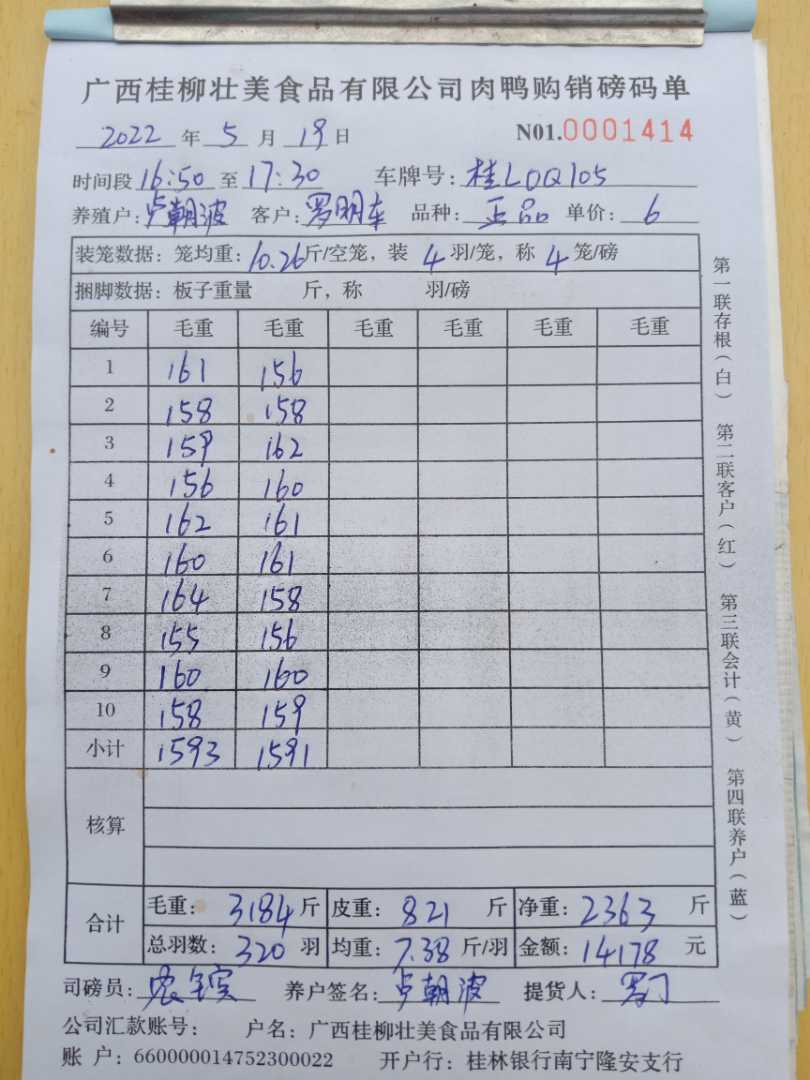 广西桂柳壮美食品有限公司肉鸭购销磅码单
2022 年 5 月 19 日 N01.0001414
时间段 16:50 至 17:30 车牌号: 桂L0Q105
养殖户: 卢朝波 客户: 罗明车 品种: 正品 单价: 6
装笼数据: 笼均重: 10.26 斤/空笼, 装 4 羽/笼, 称 4 笼/磅
捆脚数据: 板子重量 斤, 称 羽/磅
编号 毛重 毛重 毛重 毛重 毛重 毛重
1 161 156
2 158 158
3 159 162
4 156 160
5 162 161
6 160 161
7 164 158
8 155 156
9 160 160
10 158 159
小计 1593 1591
核算
合计 毛重: 3184 斤 皮重: 821 斤 净重: 2363 斤
总羽数: 320 羽 均重: 7.38 斤/羽 金额: 14178 元
司磅员: 养户签名: 卢朝波 提货人:
公司汇款账号: 户名: 广西桂柳壮美食品有限公司
账 户: 660000014752300022 开户行: 桂林银行南宁隆安支行
第一联存根(白) 第二联客户(红) 第三联会计(黄) 第四联养户(蓝)